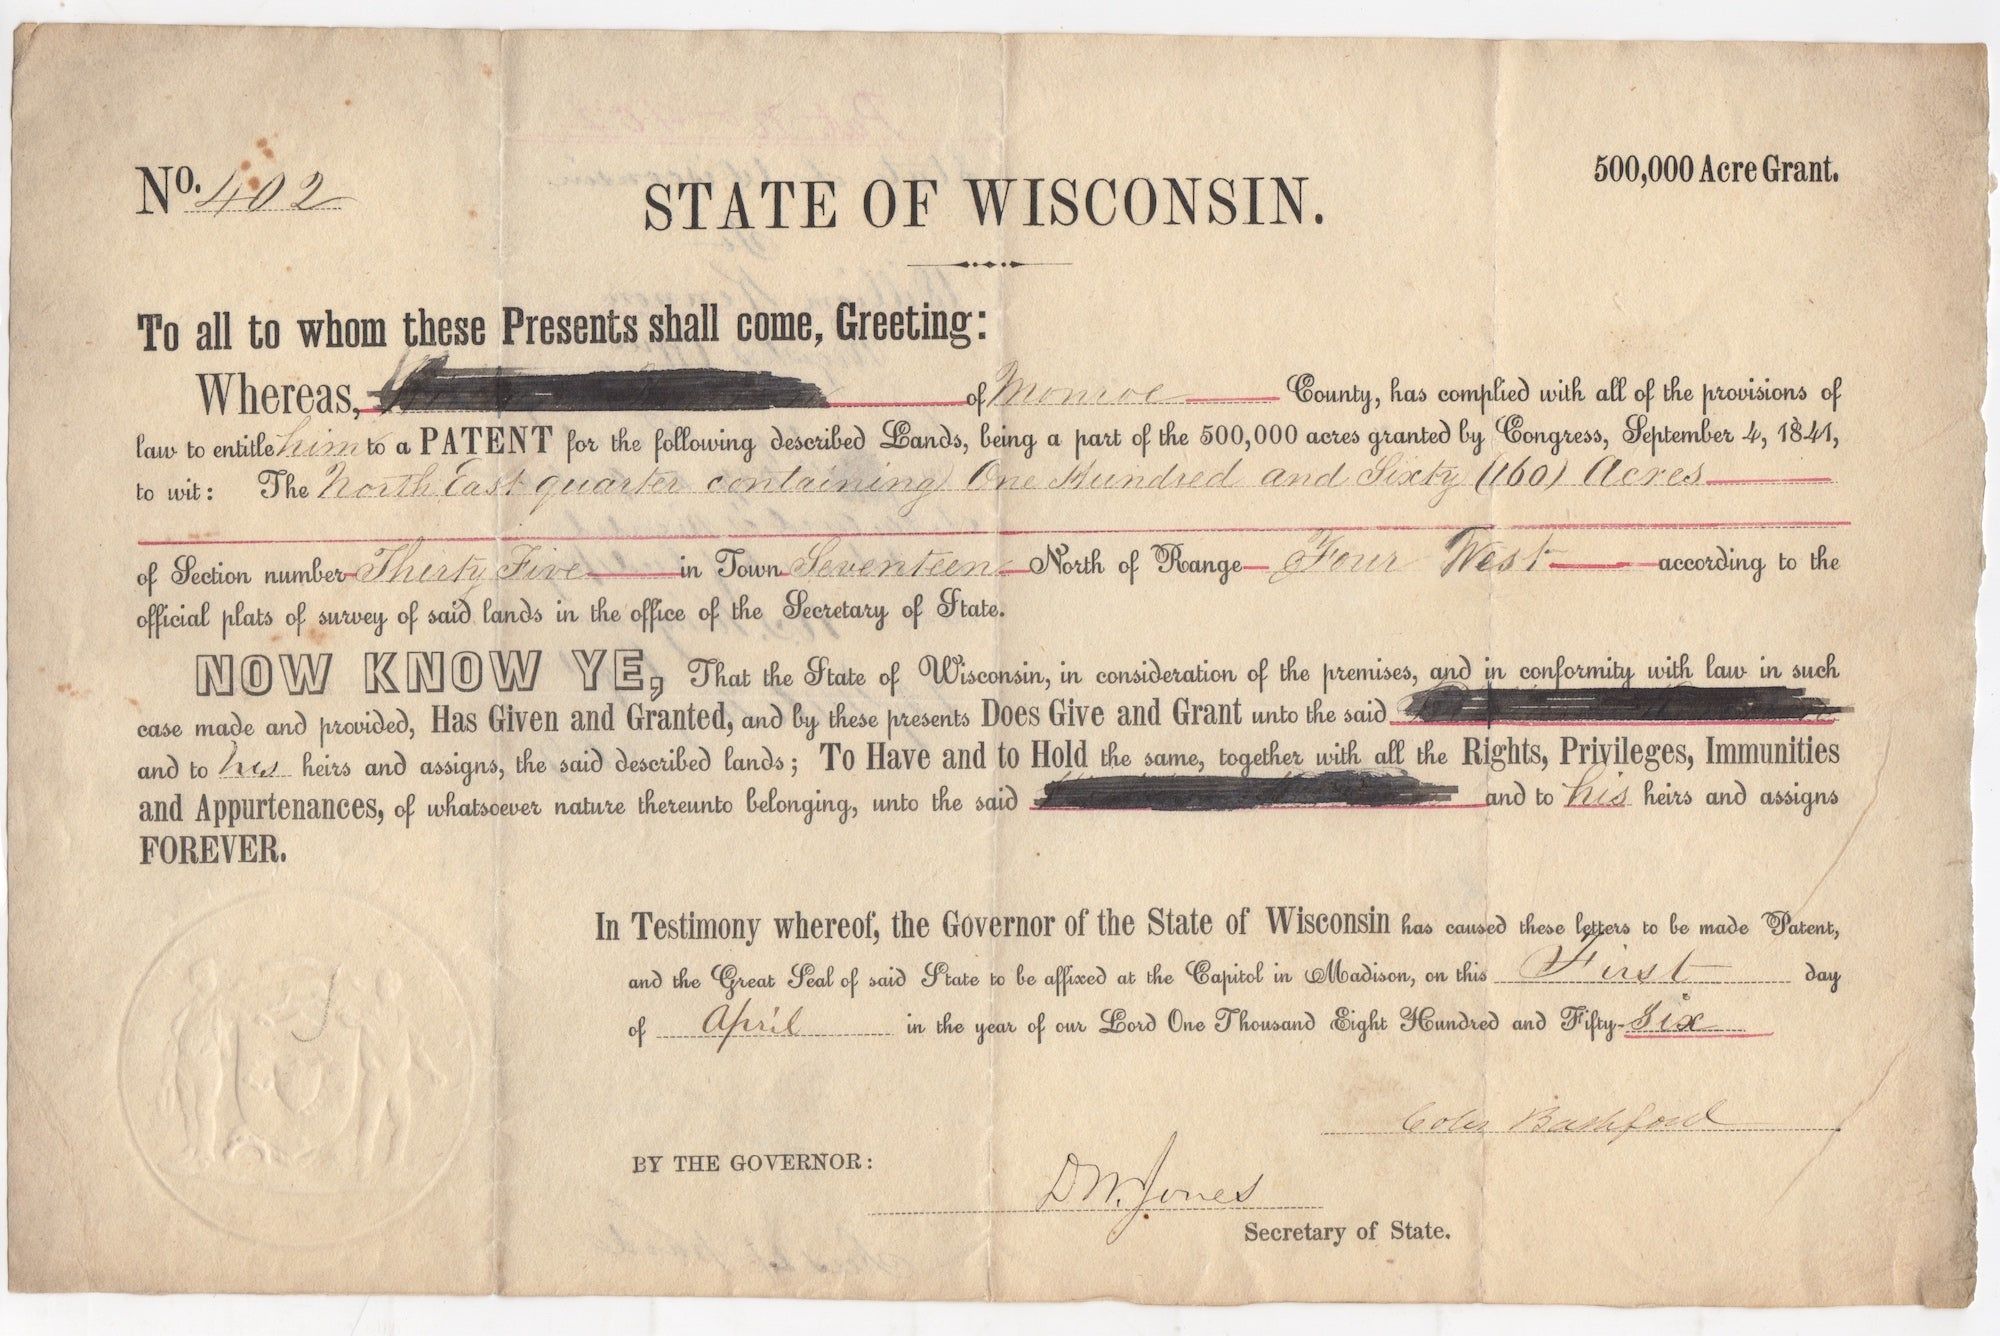 No. 402
500,000 Acre Grant.
STATE OF WISCONSIN.
To all to whom these Presents shall come, Greeting:
Whereas, of Monroe County, has complied with all of the provisions of
law to entitle him to a PATENT for the following described Lands, being a part of the 500,000 acres granted by Congress, September 4, 1841,
to wit: The North East quarter containing One Hundred and Sixty (160) Acres
of Section number Thirty Five in Town Seventeen North of Range Four West according to the
official plats of survey of said lands in the office of the Secretary of State.
NOW KNOW YE, That the State of Wisconsin, in consideration of the premises, and in conformity with law in such
case made and provided, Has Given and Granted, and by these presents Does Give and Grant unto the said
and to his heirs and assigns, the said described lands; To Have and to Hold the same, together with all the Rights, Privileges, Immunities
and Appurtenances, of whatsoever nature thereunto belonging, unto the said and to his heirs and assigns
FOREVER.
In Testimony whereof, the Governor of the State of Wisconsin has caused these letters to be made Patent,
and the Great Seal of said State to be affixed at the Capitol in Madison, on this First day
of April in the year of our Lord One Thousand Eight Hundred and Fifty-Six
Coles Bashford
BY THE GOVERNOR:
D W. Jones
Secretary of State.